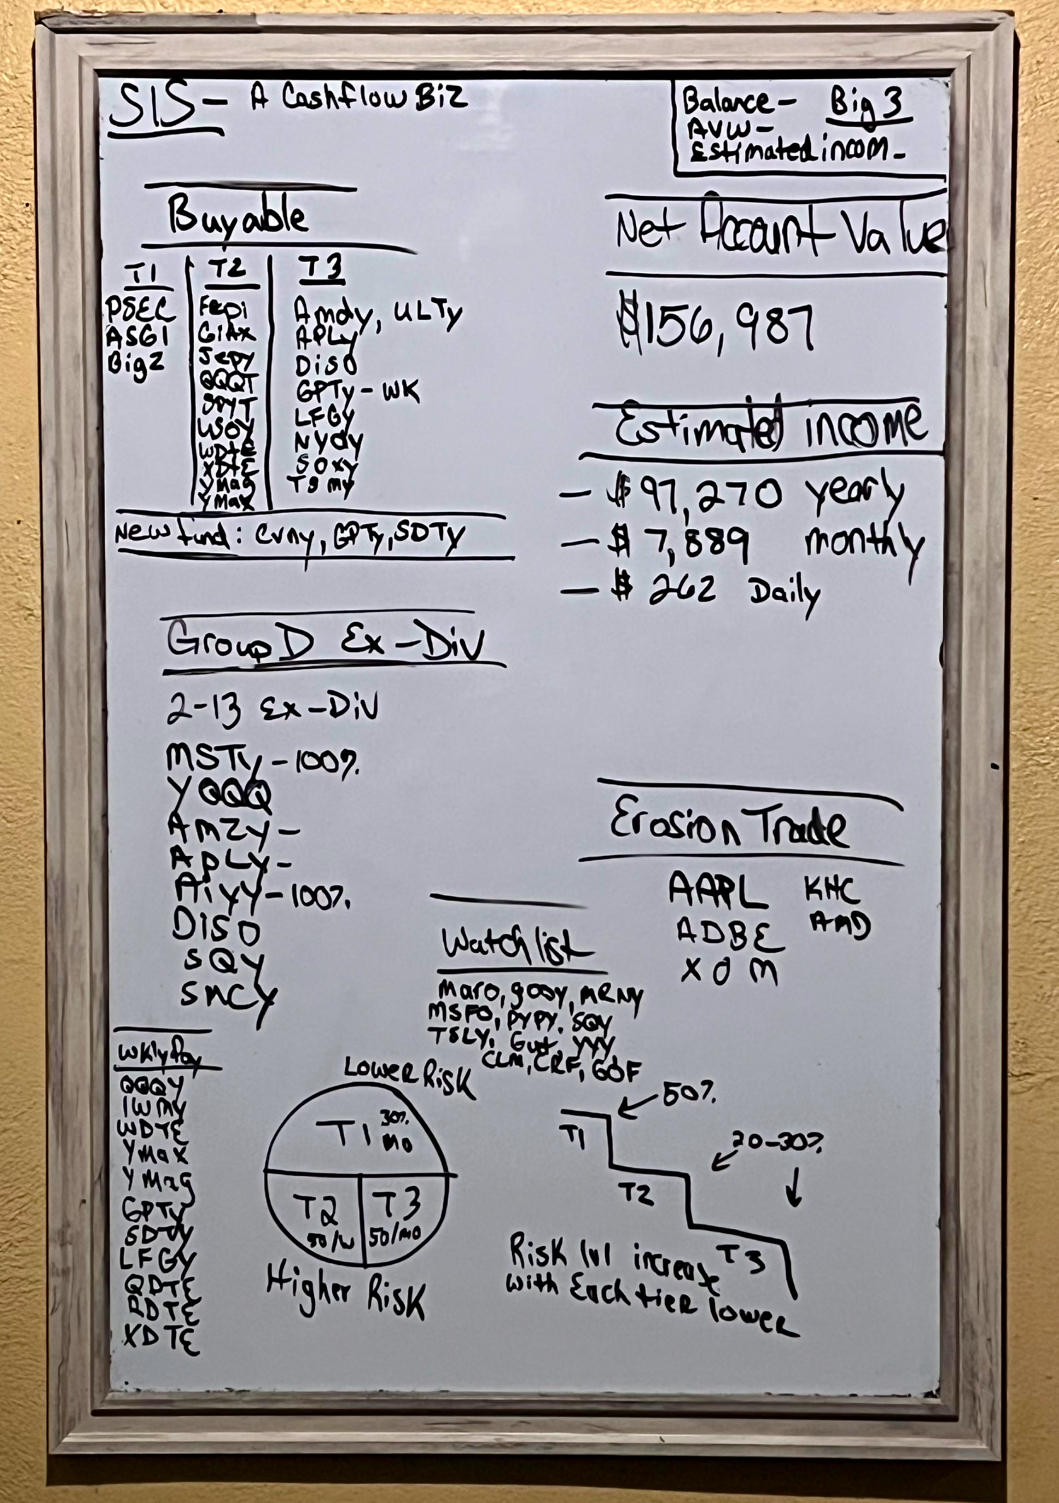 SIS - A Cashflow Biz
Balance - Big 3
AVW -
Estimated incom -
Buyable
T1 T2 T3
PSEC
ASGI
Big2
Fepi
GIAX
Jepy
QQQT
SPYT
USOY
WDTE
XDTE
Ymag
Ymax
Amdy, ULTy
APLy
DISO
GPTy - WK
LFGY
NVdy
SOXY
TSMY
New fund: CVny, GPTy, SDTY
Net Account Value
$156,987
Estimated income
- $97,270 yearly
- $7,889 monthly
- $262 Daily
Group D Ex-Div
2-13 Ex-Div
MSTy - 100%
YQQQ
AMZY -
APLY -
AIYY - 100%
DISO
SQY
SMCY
Erosion Trade
AAPL KHC
ADBE AMD
XOM
Watchlist
Maro, gooy, MRNY
MSFO, PYPY, SQY
TSLY, Gut, YYY
CLM, CRF, GOF
WklyPay
QQQY
IWMY
WDTE
YMax
YMag
GPTY
SDTY
LFGY
QDTE
RDTE
XDTE
Lower Risk
T1 30%
Mo
T2 T3
50/w 50/mo
Higher Risk
50%
T1
20-30%
T2
T3
Risk lvl increase
with Each tier lower